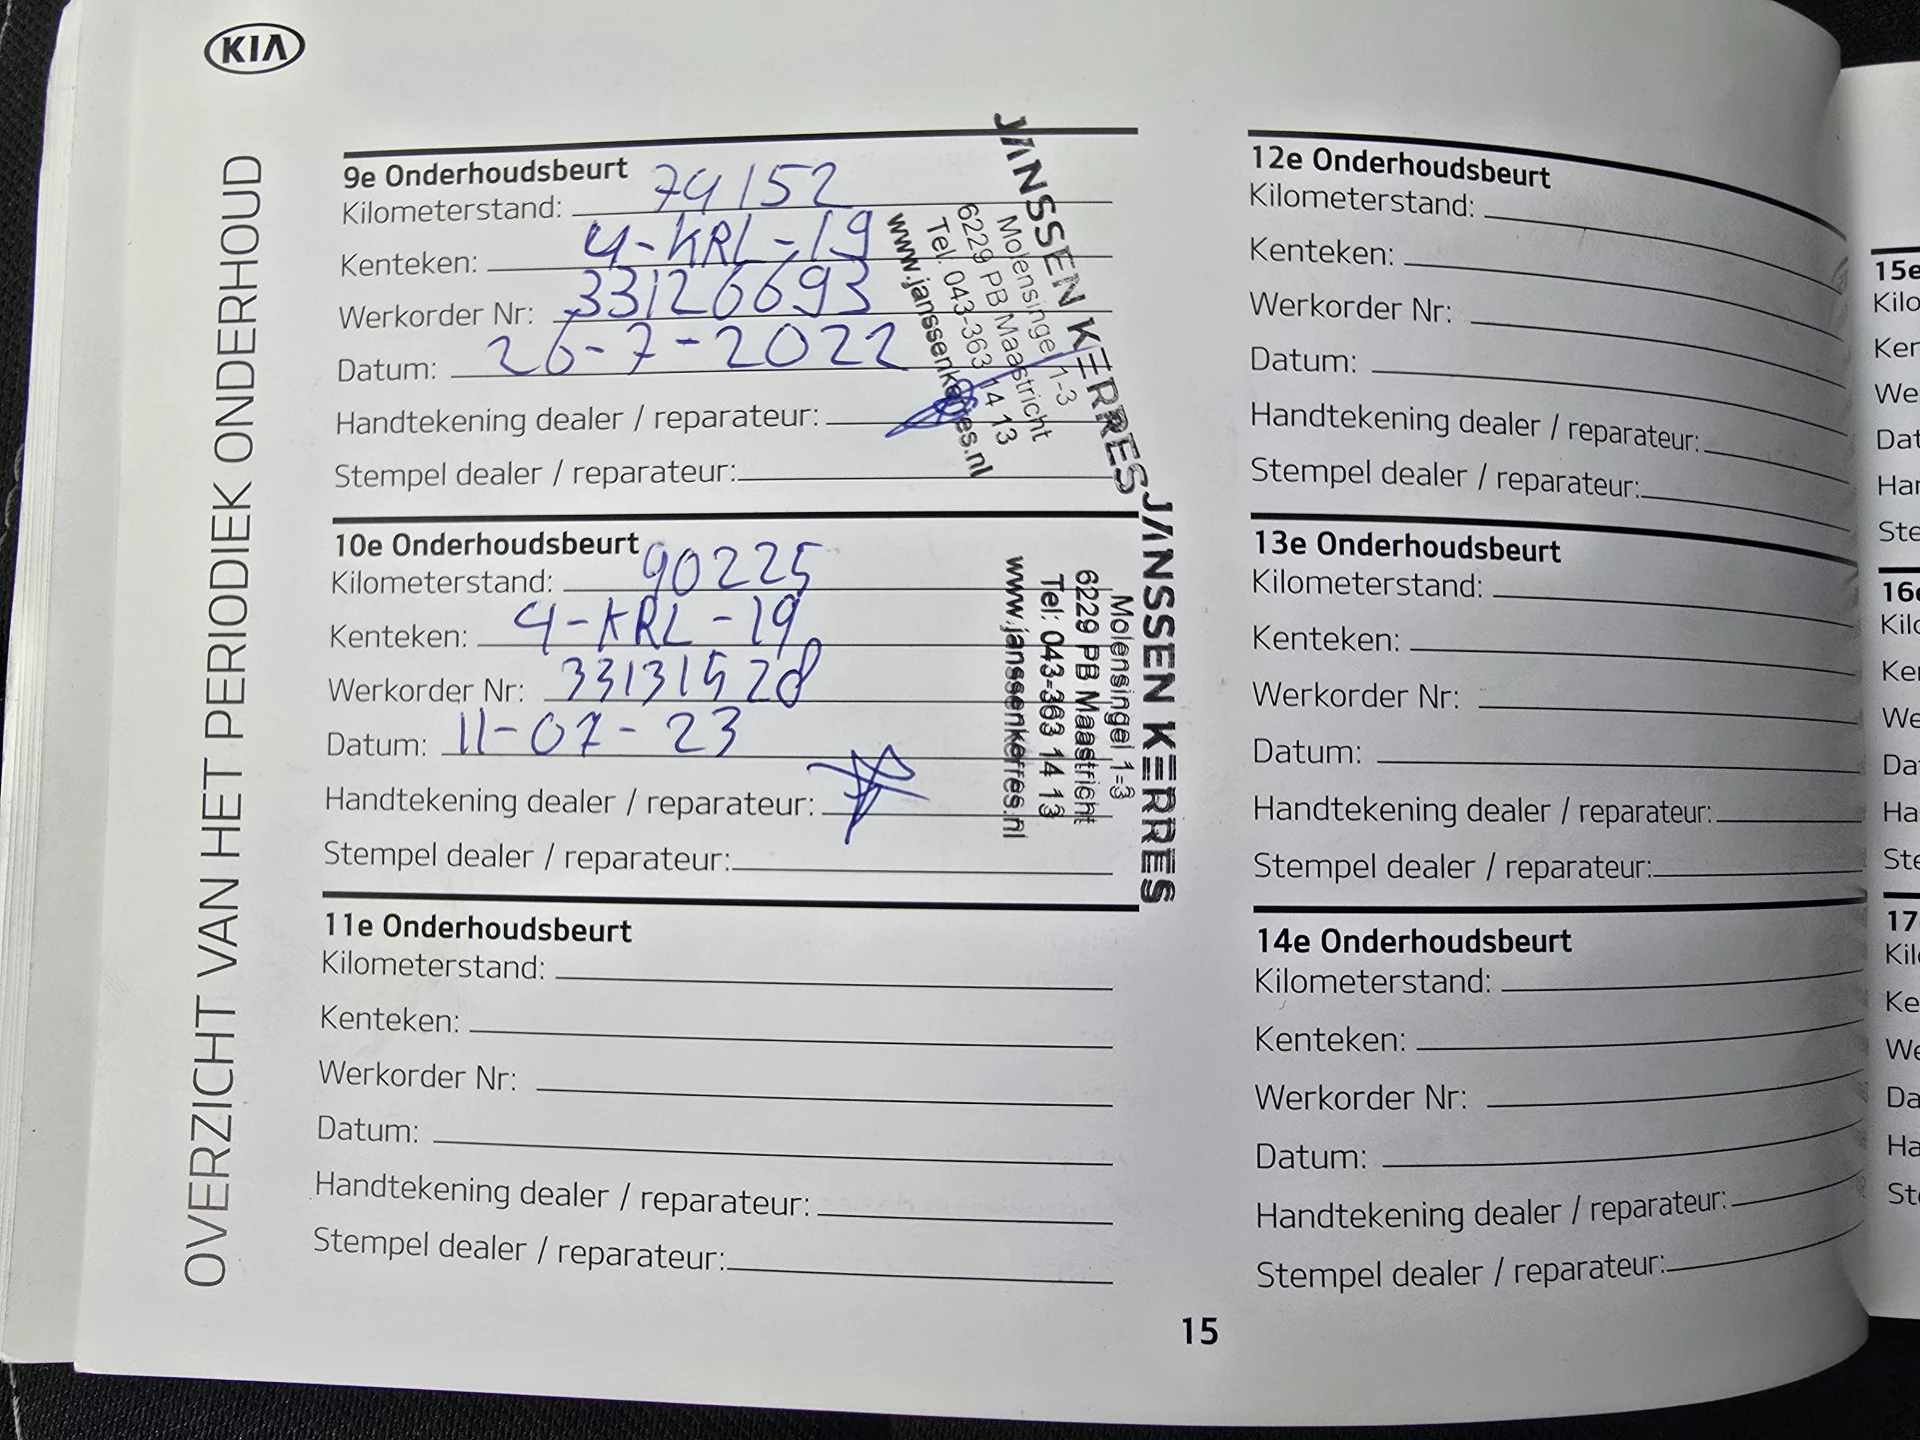 KIA
OVERZICHT VAN HET PERIODIEK ONDERHOUD
9e Onderhoudsbeurt
Kilometerstand: 74152
Kenteken: 4-KRL-19
Werkorder Nr: 33126693
Datum: 26-7-2022
Handtekening dealer / reparateur:
Stempel dealer / reparateur:
JANSSEN KERRES
Molensingel 1-3
6229 PB Maastricht
Tel. 043-363 14 13
www.janssenkerres.nl
10e Onderhoudsbeurt
Kilometerstand: 90225
Kenteken: 4-KRL-19
Werkorder Nr: 33131528
Datum: 11-07-23
Handtekening dealer / reparateur:
Stempel dealer / reparateur:
JANSSEN KERRES
Molensingel 1-3
6229 PB Maastricht
Tel: 043-363 14 13
www.janssenkerres.nl
11e Onderhoudsbeurt
Kilometerstand:
Kenteken:
Werkorder Nr:
Datum:
Handtekening dealer / reparateur:
Stempel dealer / reparateur:
12e Onderhoudsbeurt
Kilometerstand:
Kenteken:
Werkorder Nr:
Datum:
Handtekening dealer / reparateur:
Stempel dealer / reparateur:
13e Onderhoudsbeurt
Kilometerstand:
Kenteken:
Werkorder Nr:
Datum:
Handtekening dealer / reparateur:
Stempel dealer / reparateur:
14e Onderhoudsbeurt
Kilometerstand:
Kenteken:
Werkorder Nr:
Datum:
Handtekening dealer / reparateur:
Stempel dealer / reparateur:
15
15e
Kilo
Ker
We
Dat
Har
Ste
16e
Kilo
Ke
We
Da
Ha
Ste
17
Kil
Ke
We
Da
Ha
St